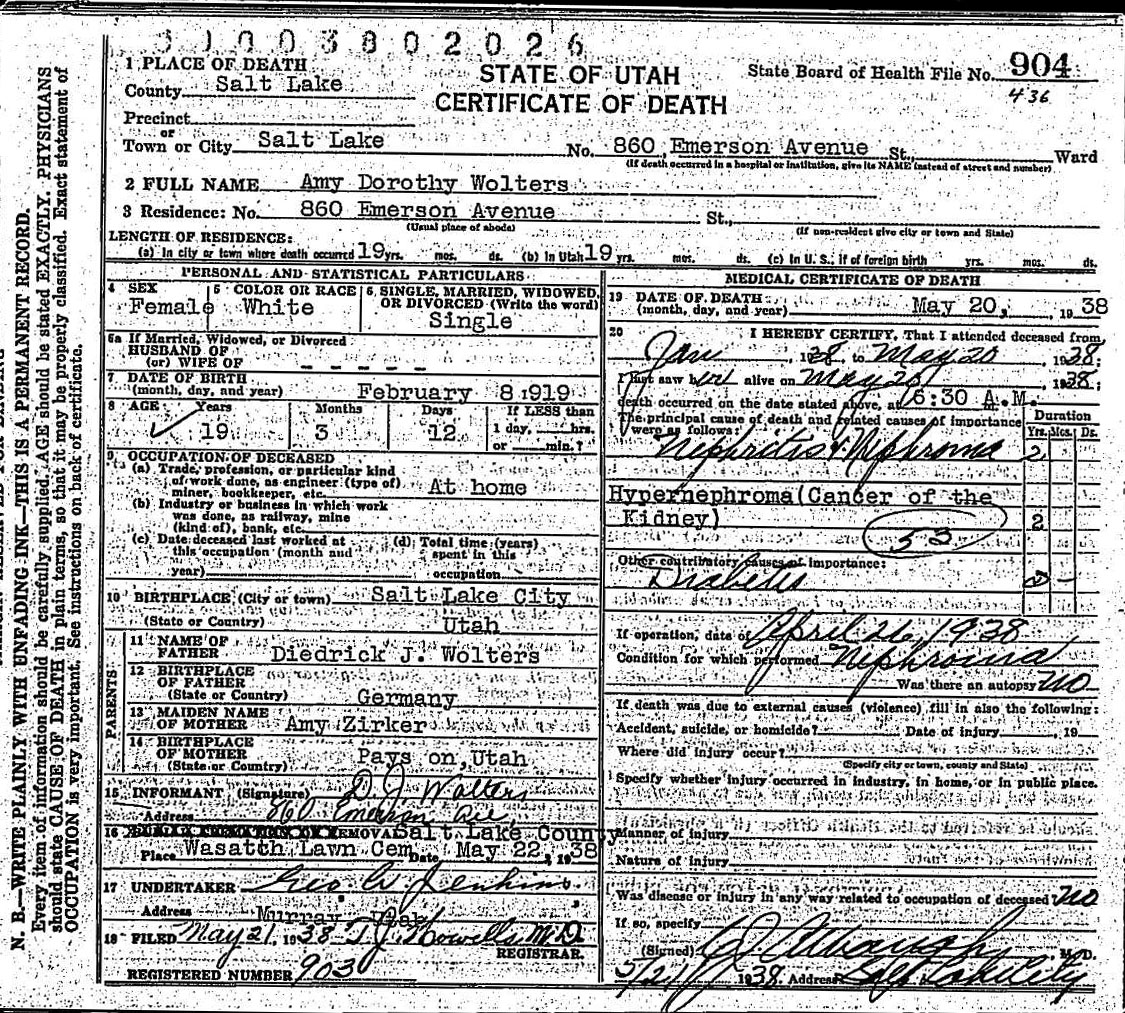 31003802026
1 PLACE OF DEATH
County Salt Lake
STATE OF UTAH
CERTIFICATE OF DEATH
State Board of Health File No. 904
436
Precinct
or
Town or City Salt Lake No. 860 Emerson Avenue St., Ward
(If death occurred in a hospital or institution, give its NAME instead of street and number)
2 FULL NAME Amy Dorothy Wolters
3 Residence: No. 860 Emerson Avenue St.,
(Usual place of abode) (If non-resident give city or town and State)
LENGTH OF RESIDENCE:
(a) In city or town where death occurred 19 yrs. mos. ds. (b) In Utah 19 yrs. mos. ds. (c) In U. S., if of foreign birth yrs. mos. ds.
PERSONAL AND STATISTICAL PARTICULARS
4 SEX Female
5 COLOR OR RACE White
6 SINGLE, MARRIED, WIDOWED, OR DIVORCED (Write the word)
Single
6a If Married, Widowed, or Divorced
HUSBAND OF
(or) WIFE OF - - - - -
7 DATE OF BIRTH
(month, day, and year) February 8 1919
8 AGE Years Months Days If LESS than
19 3 12 1 day, hrs.
or min.?
9 OCCUPATION OF DECEASED
(a) Trade, profession, or particular kind
of work done, as engineer (type of)
miner, bookkeeper, etc. At home
(b) Industry or business in which work
was done, as railway, mine
(kind of), bank, etc.
(c) Date deceased last worked at (d) Total time (years)
this occupation (month and spent in this
year) occupation
10 BIRTHPLACE (City or town) Salt Lake City
(State or Country) Utah
PARENTS
11 NAME OF
FATHER Diedrick J. Wolters
12 BIRTHPLACE
OF FATHER
(State or Country) Germany
13 MAIDEN NAME
OF MOTHER Amy Zirker
14 BIRTHPLACE
OF MOTHER
(State or Country) Pays on, Utah
15 INFORMANT (Signature) D. J. Wolters
Address 860 Emerson Ave,
16 BURIAL CREMATION OR REMOVAL Salt Lake County
Place Wasatch Lawn Cem Date May 22, 1938
17 UNDERTAKER Geo W Jenkins
Address Murray, Utah
18 FILED May 21, 1938 T. J. Howells M.D.
REGISTRAR.
REGISTERED NUMBER 903
MEDICAL CERTIFICATE OF DEATH
19 DATE OF DEATH
(month, day, and year) May 20, 1938
20 I HEREBY CERTIFY, That I attended deceased from
Jan 1938, to May 20 1938;
I last saw her alive on May 20 1938;
death occurred on the date stated above, at 6:30 A.M.
The principal cause of death and related causes of importance
were as follows: Duration
Yrs. Mos. Ds.
Nephritis & Nephroma 2
Hypernephroma(Cancer of the
Kidney) 2
53
Other contributory causes of importance:
Diabetes
If operation, date of April 26, 1938
Condition for which performed Nephroma
Was there an autopsy no
If death was due to external causes (violence) fill in also the following:
Accident, suicide, or homicide? Date of injury , 19
Where did injury occur?
(Specify city or town, county and State)
Specify whether injury occurred in industry, in home, or in public place.
Manner of injury
Nature of injury
Was disease or injury in any way related to occupation of deceased? no
If so, specify
(Signed) M. D.
5/21 1938 Address Salt Lake City
N. B.—WRITE PLAINLY WITH UNFADING INK—THIS IS A PERMANENT RECORD.
Every item of information should be carefully supplied. AGE should be stated EXACTLY. PHYSICIANS
should state CAUSE OF DEATH in plain terms, so that it may be properly classified. Exact statement of
OCCUPATION is very important. See instructions on back of certificate.